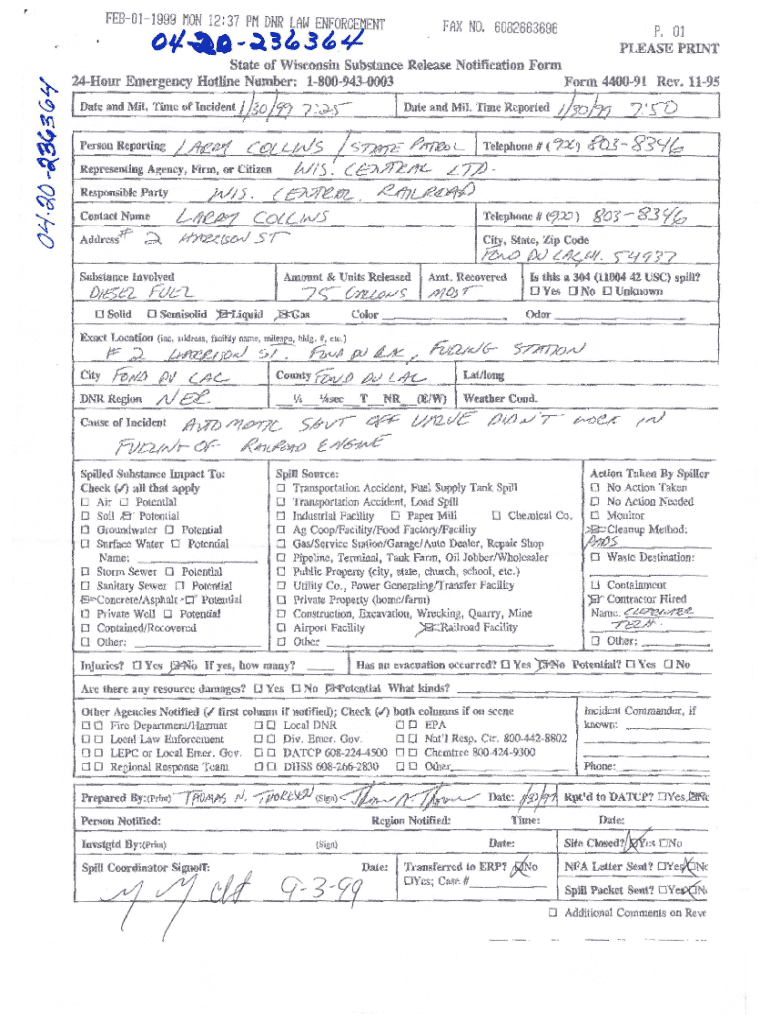 FEB-01-1999 MON 12:37 PM DNR LAW ENFORCEMENT FAX NO. 6082663696 P. 01
04-20-236364
PLEASE PRINT
04-20-236364
State of Wisconsin Substance Release Notification Form
24-Hour Emergency Hotline Number: 1-800-943-0003 Form 4400-91 Rev. 11-95
Date and Mil. Time of Incident 1/30/99 7:25 Date and Mil. Time Reported 1/30/99 7:50
Person Reporting LARRY COLLINS / STATE PATROL Telephone # (920) 803-8346
Representing Agency, Firm, or Citizen WIS. CENTRAL LTD.
Responsible Party WIS. CENTRAL RAILROAD
Contact Name LARRY COLLINS Telephone # (920) 803-8346
Address # 2 HARRISON ST City, State, Zip Code
FOND DU LAC, WI. 54937
Substance Involved Amount & Units Released Amt. Recovered Is this a 304 (11004 42 USC) spill?
DIESEL FUEL 75 GALLONS MOST ☐ Yes ☐ No ☐ Unknown
☐ Solid ☐ Semisolid ☒ Liquid ☒ Gas Color Odor
Exact Location (inc. address, facility name, mileage, bldg. #, etc.)
# 2 HARRISON ST. FOND DU LAC, FUELING STATION
City FOND DU LAC County FOND DU LAC Lat/long
DNR Region NER ¼ ¼sec T NR (E/W) Weather Cond.
Cause of Incident AUTOMATIC SHUT OFF VALVE DIDN'T WORK IN
FUELING OF RAILROAD ENGINE
Spilled Substance Impact To: Spill Source: Action Taken By Spiller
Check (✓) all that apply ☐ Transportation Accident, Fuel Supply Tank Spill ☐ No Action Taken
☐ Air ☐ Potential ☐ Transportation Accident, Load Spill ☐ No Action Needed
☐ Soil ☒ Potential ☐ Industrial Facility ☐ Paper Mill ☐ Chemical Co. ☐ Monitor
☐ Groundwater ☐ Potential ☐ Ag Coop/Facility/Food Factory/Facility ☒ Cleanup Method:
☐ Surface Water ☐ Potential ☐ Gas/Service Station/Garage/Auto Dealer, Repair Shop PADS
Name: ☐ Pipeline, Terminal, Tank Farm, Oil Jobber/Wholesaler ☐ Waste Destination:
☐ Storm Sewer ☐ Potential ☐ Public Property (city, state, church, school, etc.)
☐ Sanitary Sewer ☐ Potential ☐ Utility Co., Power Generating/Transfer Facility ☐ Containment
☒ Concrete/Asphalt ☐ Potential ☐ Private Property (home/farm) ☒ Contractor Hired
☐ Private Well ☐ Potential ☐ Construction, Excavation, Wrecking, Quarry, Mine Name:
☐ Contained/Recovered ☐ Airport Facility ☒ Railroad Facility TECH.
☐ Other: ☐ Other ☐ Other:
Injuries? ☐ Yes ☒ No If yes, how many? Has an evacuation occurred? ☐ Yes ☒ No Potential? ☐ Yes ☐ No
Are there any resource damages? ☐ Yes ☐ No ☒ Potential What kinds?
Other Agencies Notified (✓ first column if notified); Check (✓) both columns if on scene Incident Commander, if
☐ ☐ Fire Department/Hazmat ☐ ☐ Local DNR ☐ ☐ EPA known:
☐ ☐ Local Law Enforcement ☐ ☐ Div. Emer. Gov. ☐ ☐ Nat'l Resp. Ctr. 800-442-8802
☐ ☐ LEPC or Local Emer. Gov. ☐ ☐ DATCP 608-224-4500 ☐ ☐ Chemtrec 800-424-9300
☐ ☐ Regional Response Team ☐ ☐ DHSS 608-266-2830 ☐ ☐ Other Phone:
Prepared By:(Print) THOMAS N. THORESEN (Sign) Date: 1/30/99 Rpt'd to DATCP? ☐ Yes ☒ No
Person Notified: Region Notified: Time: Date:
Invstgtd By:(Print) (Sign) Date: Site Closed? ☒ Yes ☐ No
Spill Coordinator Signoff: Date: Transferred to ERP? ☒ No NFA Letter Sent? ☐ Yes ☒ No
9-3-99 ☐ Yes; Case # Spill Packet Sent? ☐ Yes ☒ No
☐ Additional Comments on Reve